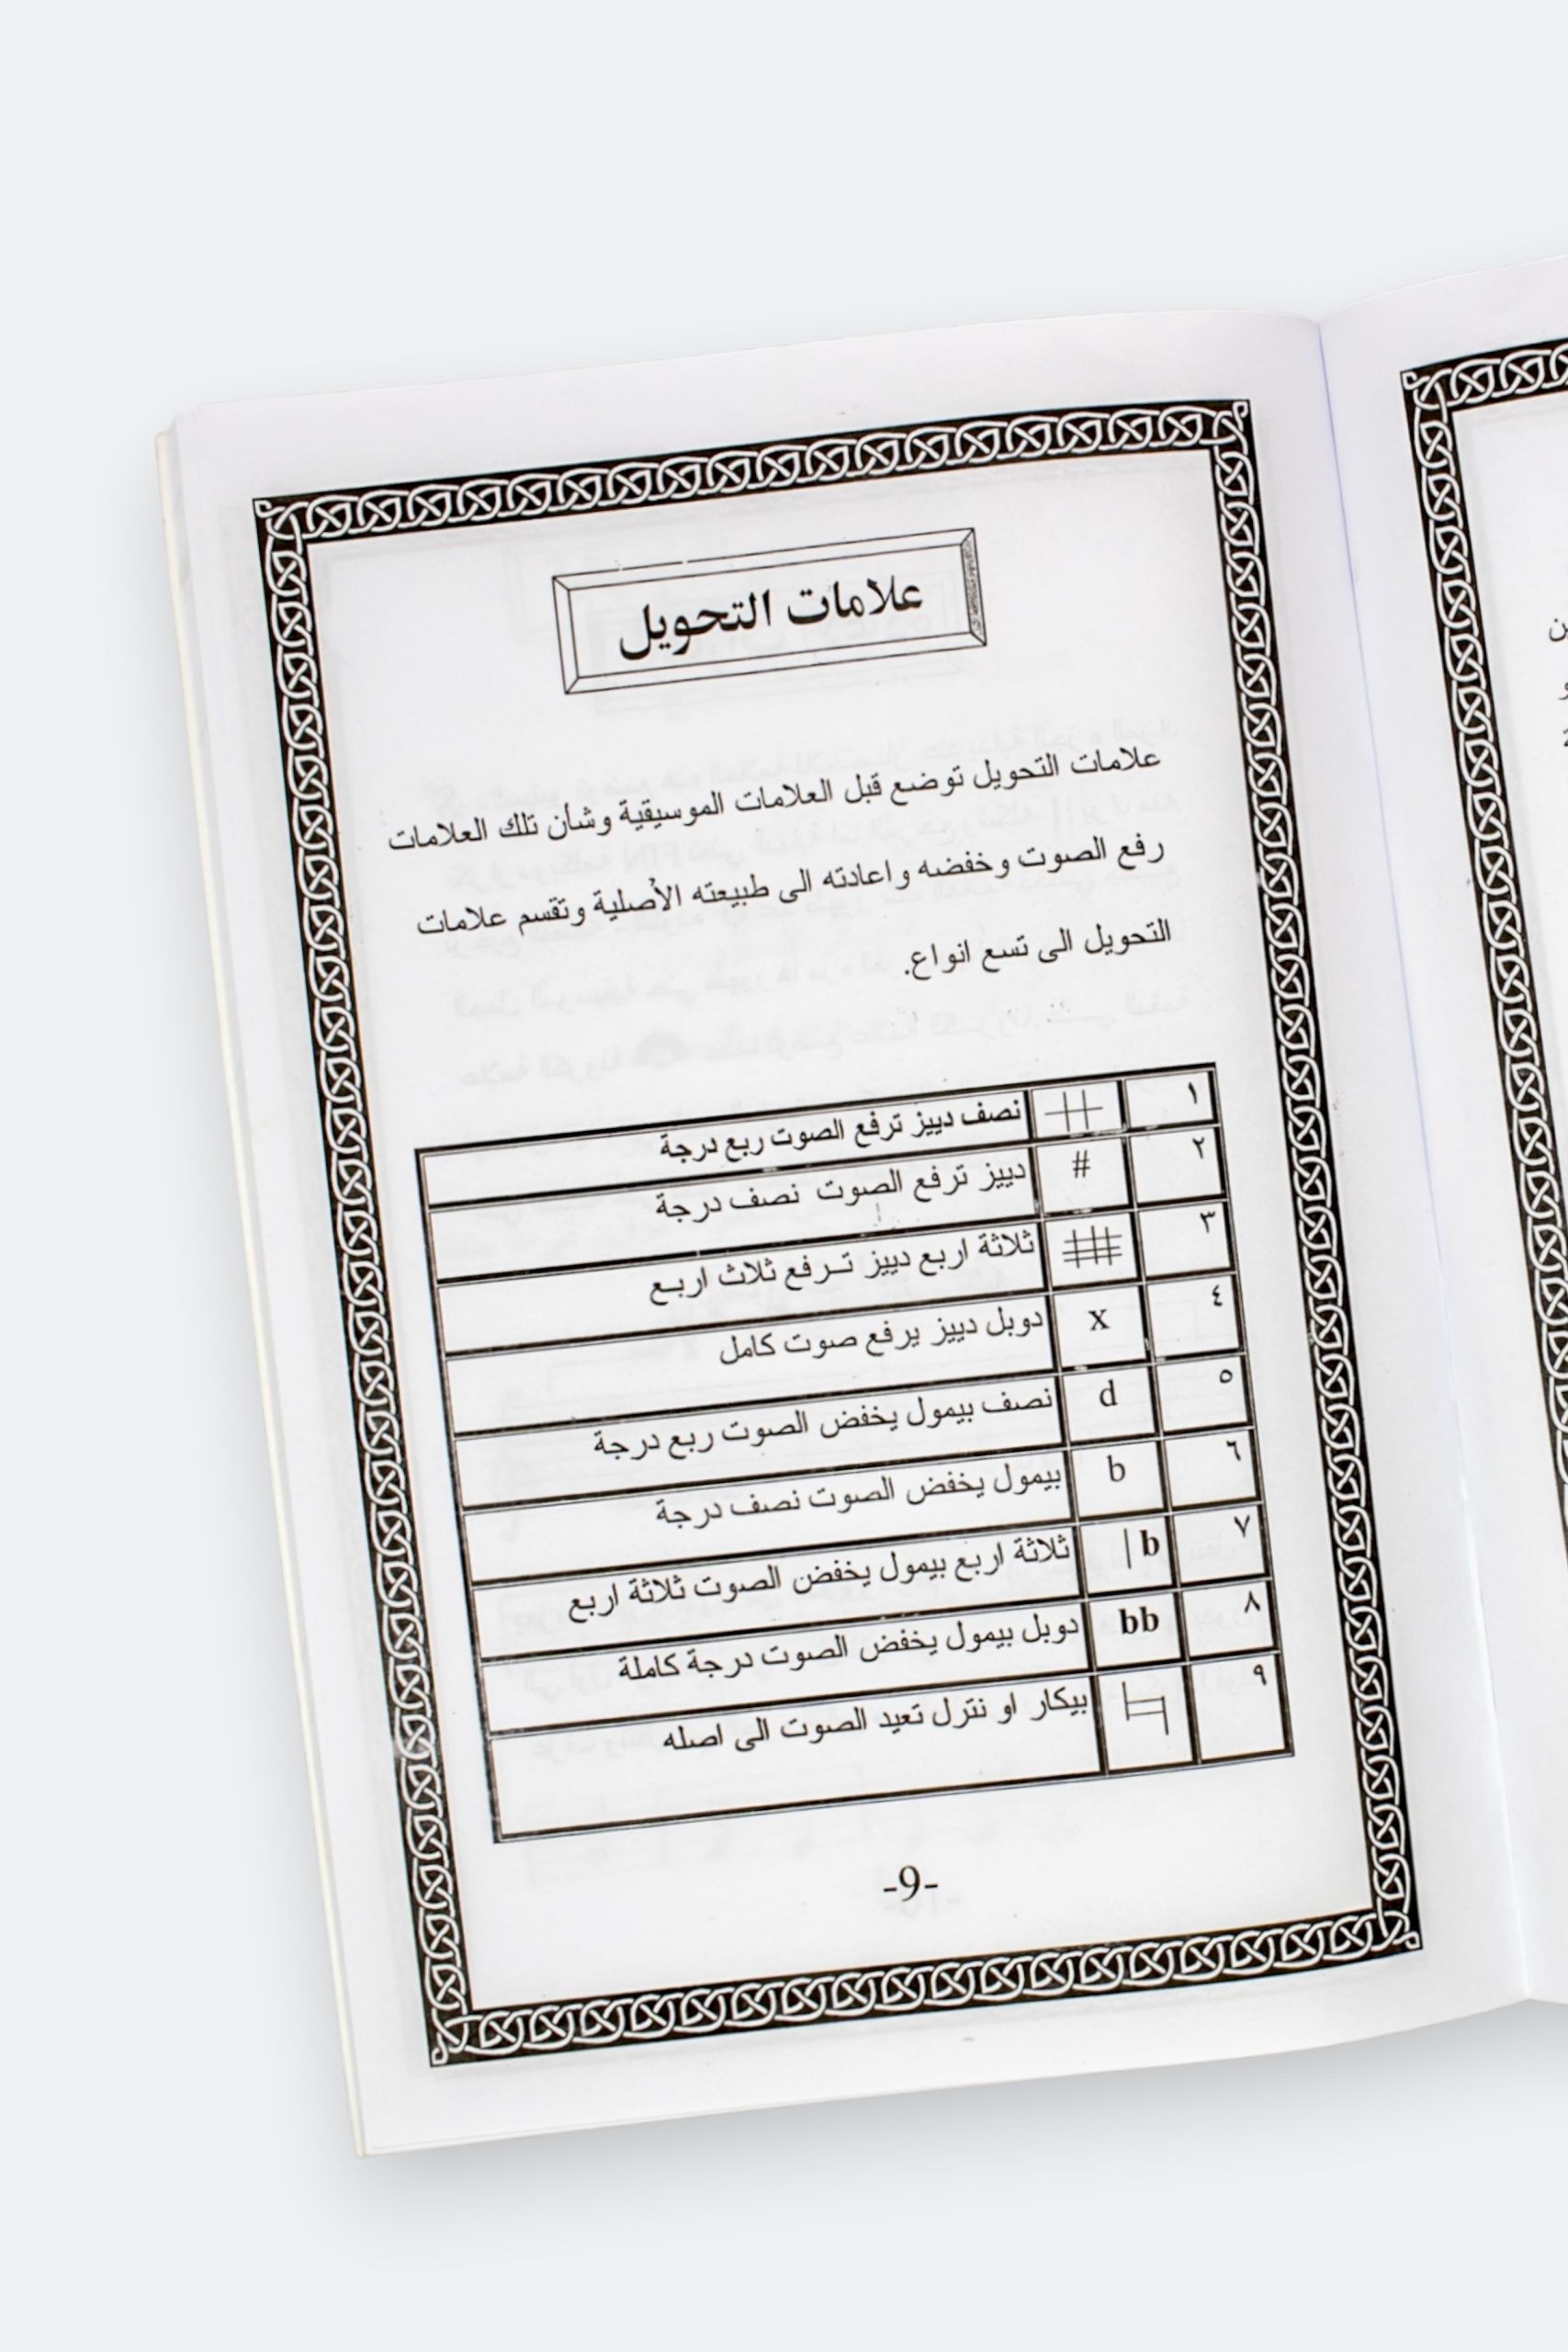 علامات التحويل
علامات التحويل توضع قبل العلامات الموسيقية وشأن تلك العلامات
رفع الصوت وخفضه واعادته الى طبيعته الأصلية وتقسم علامات
التحويل الى تسع انواع.
١ نصف دييز ترفع الصوت ربع درجة
٢ # دييز ترفع الصوت نصف درجة
٣ ثلاثة اربع دييز تـرفع ثلاث اربـع
٤ x دوبل دييز يرفع صوت كامل
٥ d نصف بيمول يخفض الصوت ربع درجة
٦ b بيمول يخفض الصوت نصف درجة
٧ |b ثلاثة اربع بيمول يخفض الصوت ثلاثة اربع
٨ bb دوبل بيمول يخفض الصوت درجة كاملة
٩ بيكار او نترل تعيد الصوت الى اصله
-9-